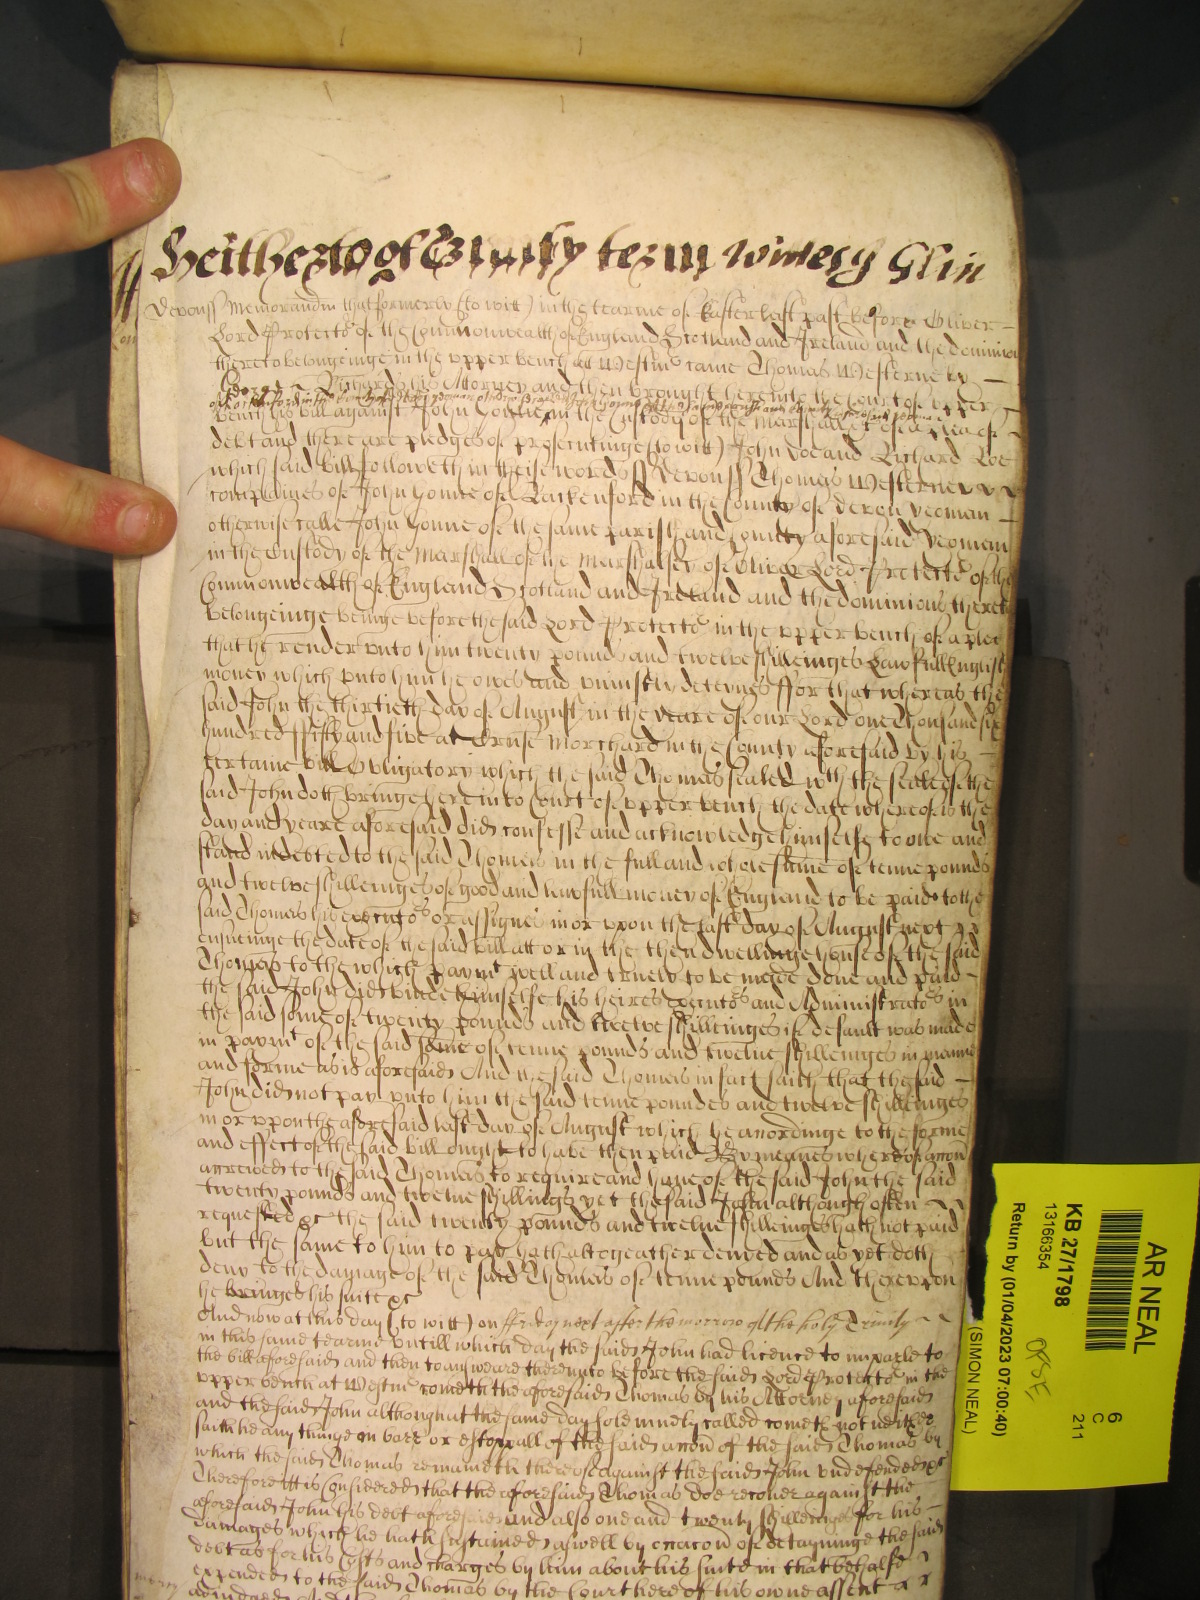 Devonss Memorandm that formerly (to witt) in the tearme of Easter last past before Oliver
Lord Protector of the Commonwealth of England Scotland and Ireland and the dominions
thereto belongeinge in the upper bench att Westmr came Thomas Westerne by
George Richards his Attorney and then brought here into the Court of upper
bench his bill against John Gonne in the Custody of the Marshall &c of a plea of
debt and there are pledges of prosecutinge (to witt) John Doe and Richard Roe
which said bill followeth in theise words ss Devonss Thomas Westerne
complaines of John Gonne of Rackenford in the County of devon yeoman
otherwise calle John Gonne of the same parish and County aforesaid yeoman
in the Custody of the Marshall of the Marshalsey of Oliver Lord Protector of the
Commonwealth of England Scotland and Ireland and the dominions thereto
belongeinge beinge before the said Lord Protector in the upper bench of a plea
that he render unto him twenty pounds and twelve shilleinges Lawfull English
money which unto him he owes and uniustly deteynes ffor that whereas the
said John the thirtieth day of August in the yeare of our Lord one Thousand six
hundred ffifty and five at Cruse Morchard in the County aforesaid by his
certaine bill Obligatory which the said Thomas sealed with the seale of the
said John doth bringe here into Court of upper bench the date whereof is the
day and yeare aforesaid did confesse and acknowledge himselfe to owe and
stand indebted to the said Thomas in the full and whole summe of tenne pounds
and twelve shilleinges of good and lawfull money of England to be paid to the
said Thomas his executors or assignes in or upon the last day of August next
ensueinge the date of the said bill att or in the then dwellinge house of the said
Thomas to the which paymt well and truely to be made done and paid
the said John did binde himselfe his heires executors and Administrators in
the said some of twenty pounds and twelve shilleinges if default was made
in paymt of the said some of tenne pounds and twelve shilleinges in manner
and forme as is aforesaid And the said Thomas in fact saith that the said
John did not pay unto him the said tenne poundes and twelve shillinges
in or upon the aforesaid last day of August which he accordinge to the forme
and effect of the said bill ought to have then paid By meanes whereof accon
accrewed to the said Thomas to require and have of the said John the said
twenty pounds and twelve shillings yet the said John although often
requested &c the said twenty pounds and twelve shilleinges hath not paid
but the same to him to pay hath altogeather denied and as yet doth
deny to the damage of the said Thomas of tenne pounds And thereupon
he bringes his suite &c
And now at this day (to witt) on ffryday next after the morrow of the holy Trinity
in this same tearme untill which day the said John had licence to imparle to
the bill aforesaid and then to answeare thereunto before the said Lord Protector in the
upper bench at Westmr cometh the aforesaid Thomas by his Attorney aforesaid
and the said John although at the same day solemnely called cometh not neither
saith he any thinge in barr or estoppall of the said accon of the said Thomas by
which the said Thomas remaineth thereof against the said John undefended &c
Therefore itt is considered that the aforesaid Thomas doe recover against the
aforesaid John his debt aforesaid and also one and twenty shilleinges for his
damages which he hath sustained aswell by occacon of detayninge the said
debt as for his Costs and charges by him about his suite in that behalfe
expended to the said Thomas by the Court here of his owne assent
AR NEAL
6
C
211
KB 27/1798
13166354
Return by (01/04/2023 07:00:40)
(SIMON NEAL)